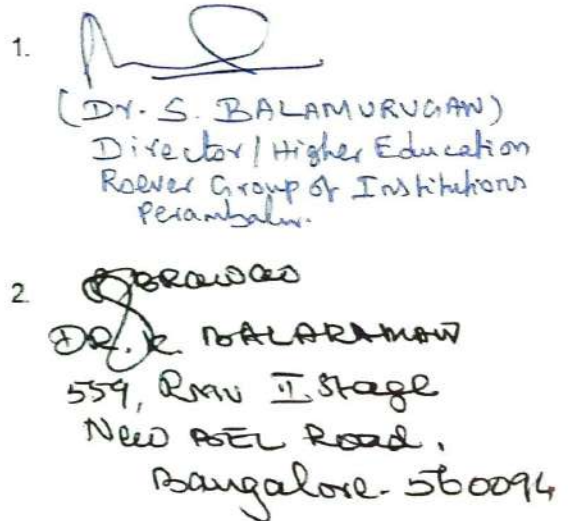 1.
(Dr. S. BALAMURUGAN)
Director/Higher Education
Roever Group of Institutions
Perambalur.
2.
DR. K. BALARAMAN
559, RMV II Stage
New BEL Road,
Bangalore - 560094